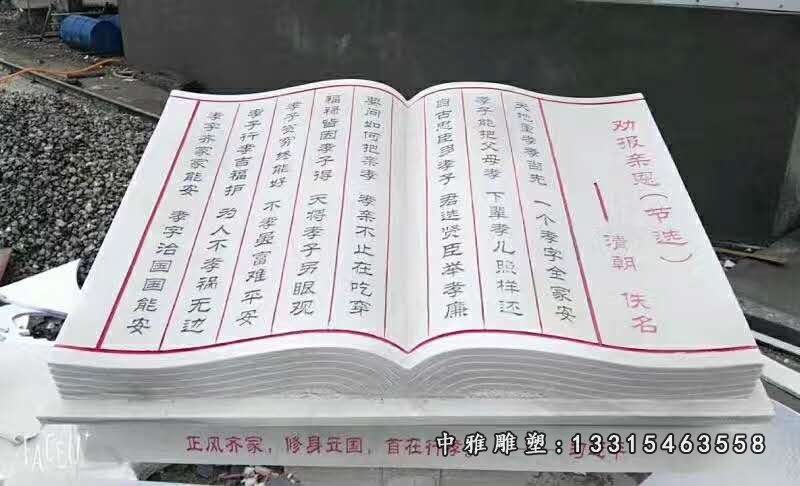 劝报亲恩(节选)
—清朝 佚名
天地重孝孝当先 一个孝字全家安
孝子能把父母孝 下辈孝儿照样还
自古忠臣多孝子 君选贤臣举孝廉
要问如何把亲孝 孝亲不止在吃穿
福禄皆因孝子得 天将孝子另眼观
孝子贫穷终能好 不孝虽富难平安
孝子行孝吉福护 为人不孝祸无边
孝字齐家家能安 孝字治国国能安
正风齐家，修身立国，首在行孝
中雅雕塑:13315463558
FACEU